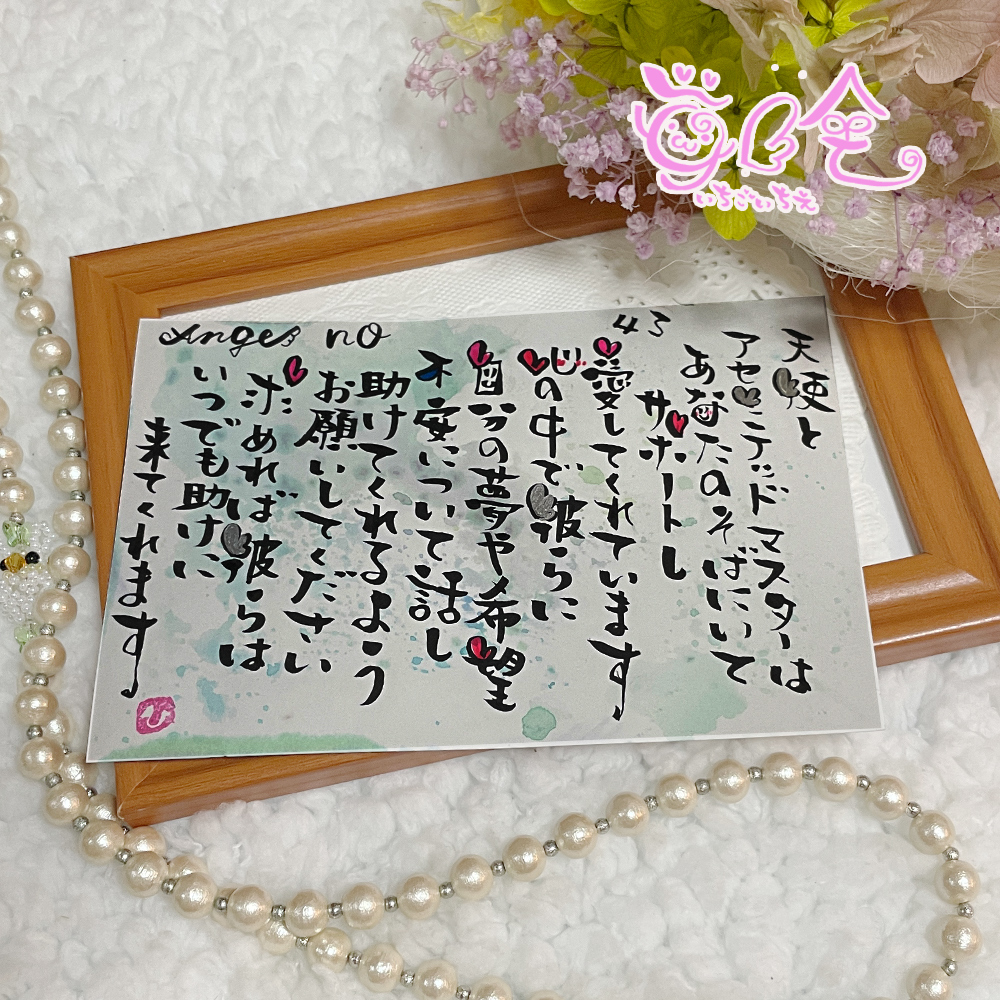 いちごいちえ
Angel no
43
天使と
アセンデッドマスターは
あなたのそばにいて
サポートし
愛してくれています
心の中で彼らに
自分の夢や希望
不安について話し
助けてくれるよう
お願いしてください
求めれば彼らは
いつでも助けに
来てくれます